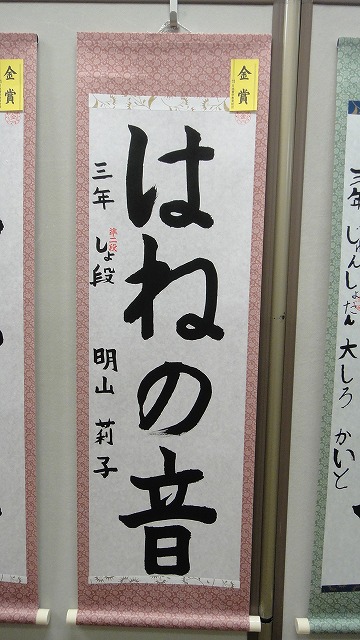 金賞
はねの音
三年 しょ段 明山 莉子
準二段
金賞
三年 じゅんしょだん 大しろ かいと
金賞